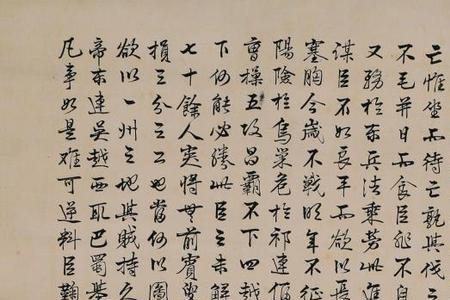 亡惟坐而待亡孰其伐之
不毛并日而食臣非不自
又務於東兵法乘勞此進
謀臣不如良平而欲以長
塞胸今歲不戰明年不征
陽險於烏巢危於祁連偪
曹操五攻昌霸不下四越
下何能必勝此臣之未解
七十餘人突將無前賨叟
損三分之二也當何以圖
欲以一州之地與賊持久
帝東連吳越西取巴蜀舉
凡事如是難可逆料臣鞠